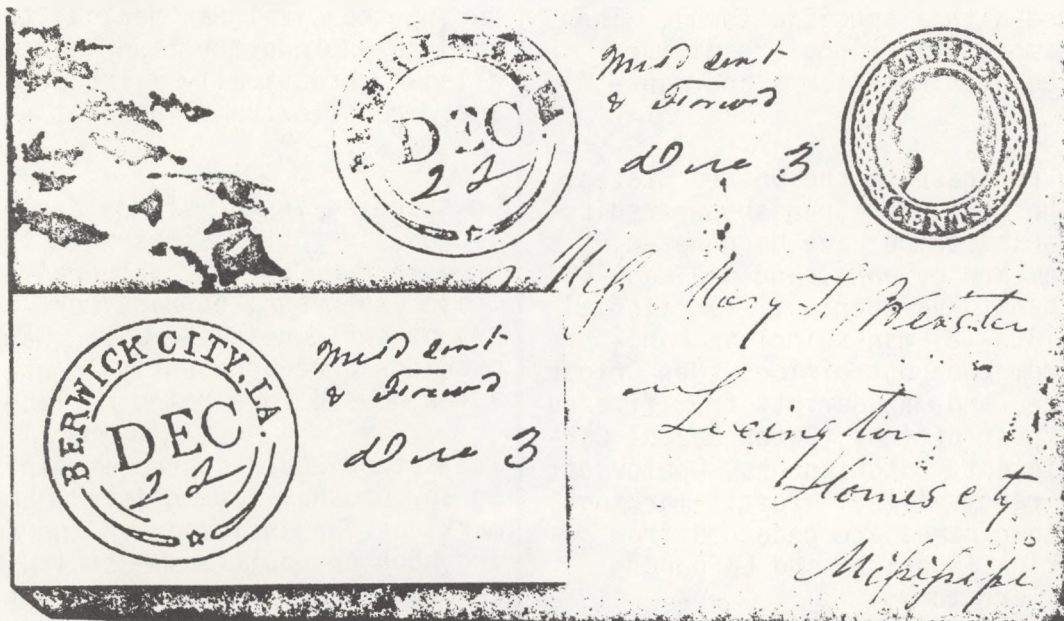 BERWICK CITY, LA.
DEC
22
Miss'd sent
& Forward
Due 3
THREE
CENTS
Miss Mary J. Webster
Lexington
Homes city
Missisippi
BERWICK CITY, LA.
DEC
22
Miss'd sent
& Forward
Due 3